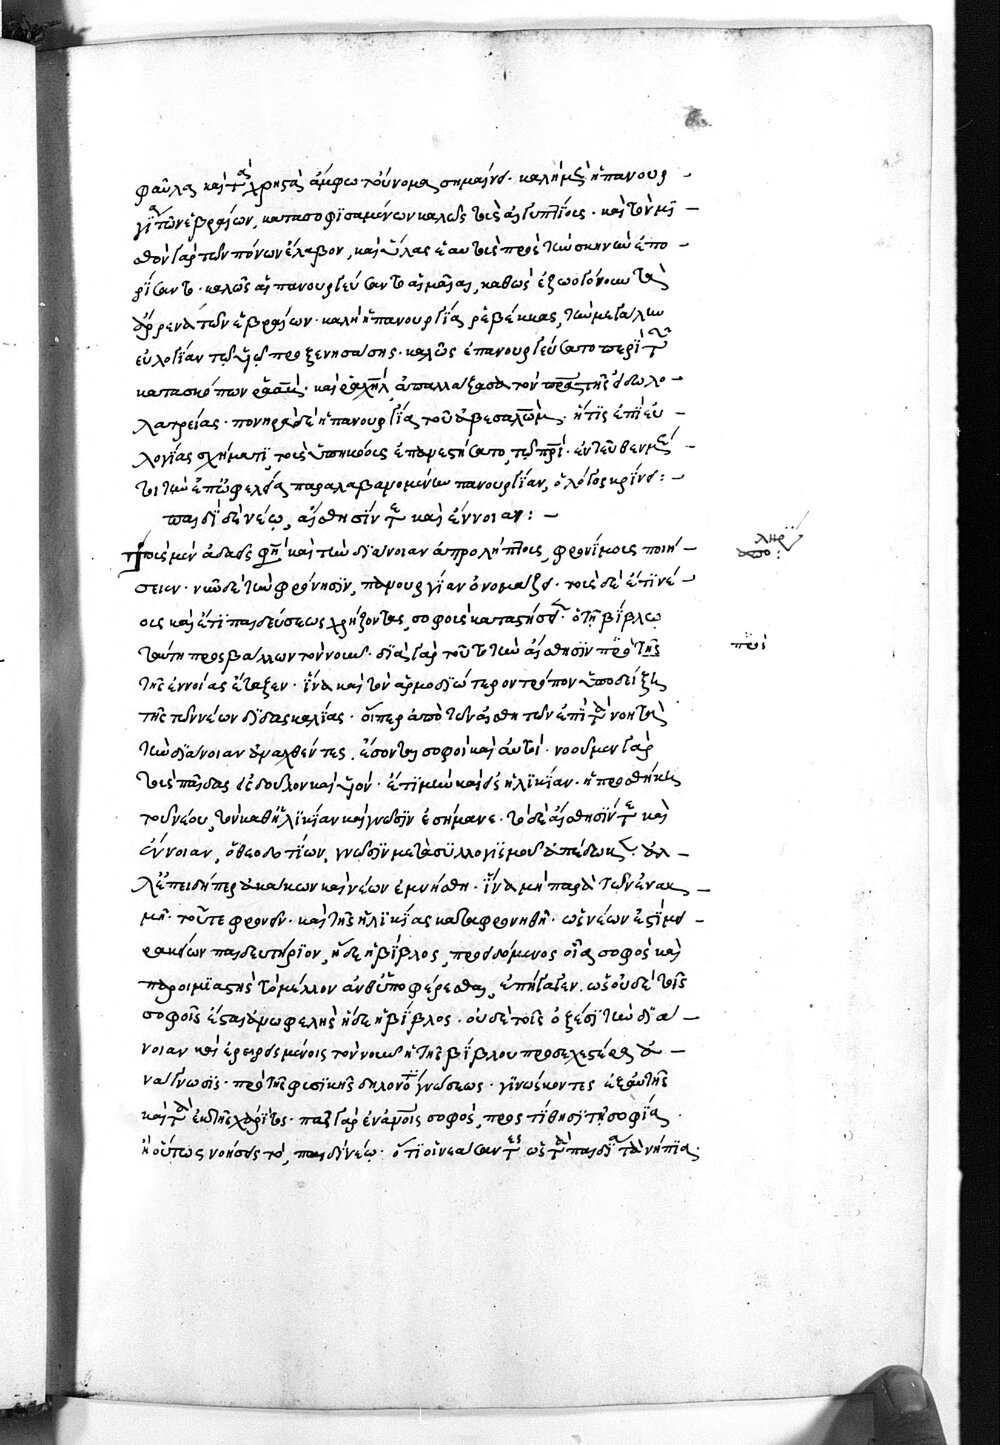 φαῦλα καὶ τὰ χρηστὰ ἄμφω τοὔνομα σημαίνει· καλὴ μὲν ἡ πανουρ
γία τῶν ἑβραίων, κατασοφισαμένων καλῶς τοὺς αἰγυπτίους· καὶ τὸν μι
σθὸν γὰρ τῶν πόνων ἔλαβον, καὶ ὕλας ἑαυτοῖς πρὸς τὴν σκηνὴν ἐπο
ρίσαντο· καλῶς αἱ πανουργεύσαντο αἱ μαῖαι, καθὼς ἐζωογόνουν τὰ
ἄρρενα τῶν ἑβραίων· καλὴ ἡ πανουργία ῥεβέκκας, τὴν μεγάλην
εὐλογίαν τῷ υἱῷ προξενησάσης· καλῶς ἐπανουργεύσατο περὶ τῶν
κατασκόπων ῥαὰβ· καὶ ῥαχὴλ ἀπαλλάξασα τὸν πρα τῆς εἰδωλο
λατρείας· πονηρὰ δὲ ἡ πανουργία τοῦ ἀβεσαλὼμ· ἥτις ἐπὶ εὐ
λογίας σχήματι, τοὺς ὑπηκόους ἐπανεστήσατο, τῷ πρι· ἐντεῦθεν μέν
τοι τὴν ἐπωφελεία παραλαβανομένην πανουργίαν, ὁ λόγος κρίνει:
παιδὶ δὲ νέῳ, αἴσθησίν τε καὶ ἔννοιαν:
Τοῖς μὲν ἀδαέσι φη καὶ τὴν διάνοιαν ἀπρολήπτοις, φρονίμοις ποιή
σειεν· νῦν δὲ τὴν φρόνησιν, πανουργίαν ὀνομάζει· τοὺς δὲ ἔτι νέ
ους καὶ ἔτι παιδεύσεως χρήζοντας, σοφοὺς καταστήσει· ὁ τῇ βίβλῳ
ταύτῃ προσβάλλων τὸν νοῦν· διὰ γὰρ τοῦτο τὴν αἴσθησιν πρὸ τῆς
τῆς ἐννοίας ἔταξεν· ἵνα καὶ τὸν ἁρμοδιώτερον τρόπον ὑποδείξῃ
τῆς τῶν νέων διδασκαλίας· οἵπερ ἀπὸ τῶν αἰσθητῶν ἐπὶ τὰ νοητὰ
τὴν διάνοιαν ἀναχθέντες, ἔσονται σοφοὶ καὶ αὐτοὶ· νοοῦμεν γὰρ
τοὺς παῖδας δοῦλον καὶ υἱὸν· ἔτι μὴν καὶ ἡλικίαν· ἡ προσθήκη
τοῦ νέου, τὸν καθ' ἡλικίαν καὶ γνῶσιν ἐσήμανε· τὸ δὲ αἴσθησίν τε καὶ
ἔννοιαν, ὁ θεοδοτίων, γνῶσιν μετὰ συλλογισμοῦ ἀπέδωκεν· ἀλ
λ' ἐπειδήπερ ἀκάκων καὶ νέων ἐμνήσθη· ἵνα μὴ παρὰ τῶν ἐν ἀκ
μῇ· τοῦ τε φρονεῖν· καὶ τῆς ἡλικίας καταφρονηθῇ· ὡς νέων ἔστι μει
ρακίων παιδευτήριον, ἥδε ἡ βίβλος, προειδόμενος οἷα σοφὸς καὶ
παροιμιαστὴς τὸ μέλλον ἀνθυποφέρεσθαι, ἐπήγαγεν· ὡς οὐδὲ τοῖς
σοφοῖς ἔσται ἀνωφελὴς ἥδε ἡ βίβλος· οὐδὲ τοῖς ὀξέσι τὴν διά
νοιαν καὶ ἐρειρομένοις τὸν νοῦν ἡ τῆς βίβλου προσεχεστέρα ἀ
νάγνωσις· πρὸ τῆς φυσικῆς δηλονότι γνώσεως· γινώσκοντες ἐξ αὐτῆς
καὶ τὰ ἐκ τῆς χάριτος· πᾶς γὰρ ἐν ἀνοις σοφὸς, προστίθησι τῇ σοφία.
ἢ οὕτως νοήσεις τὸ, παιδὶ νέῳ· ὅτι οἱ νεάσαντες ὡς τὰ παιδία τὰ νήπια.
πρὸ